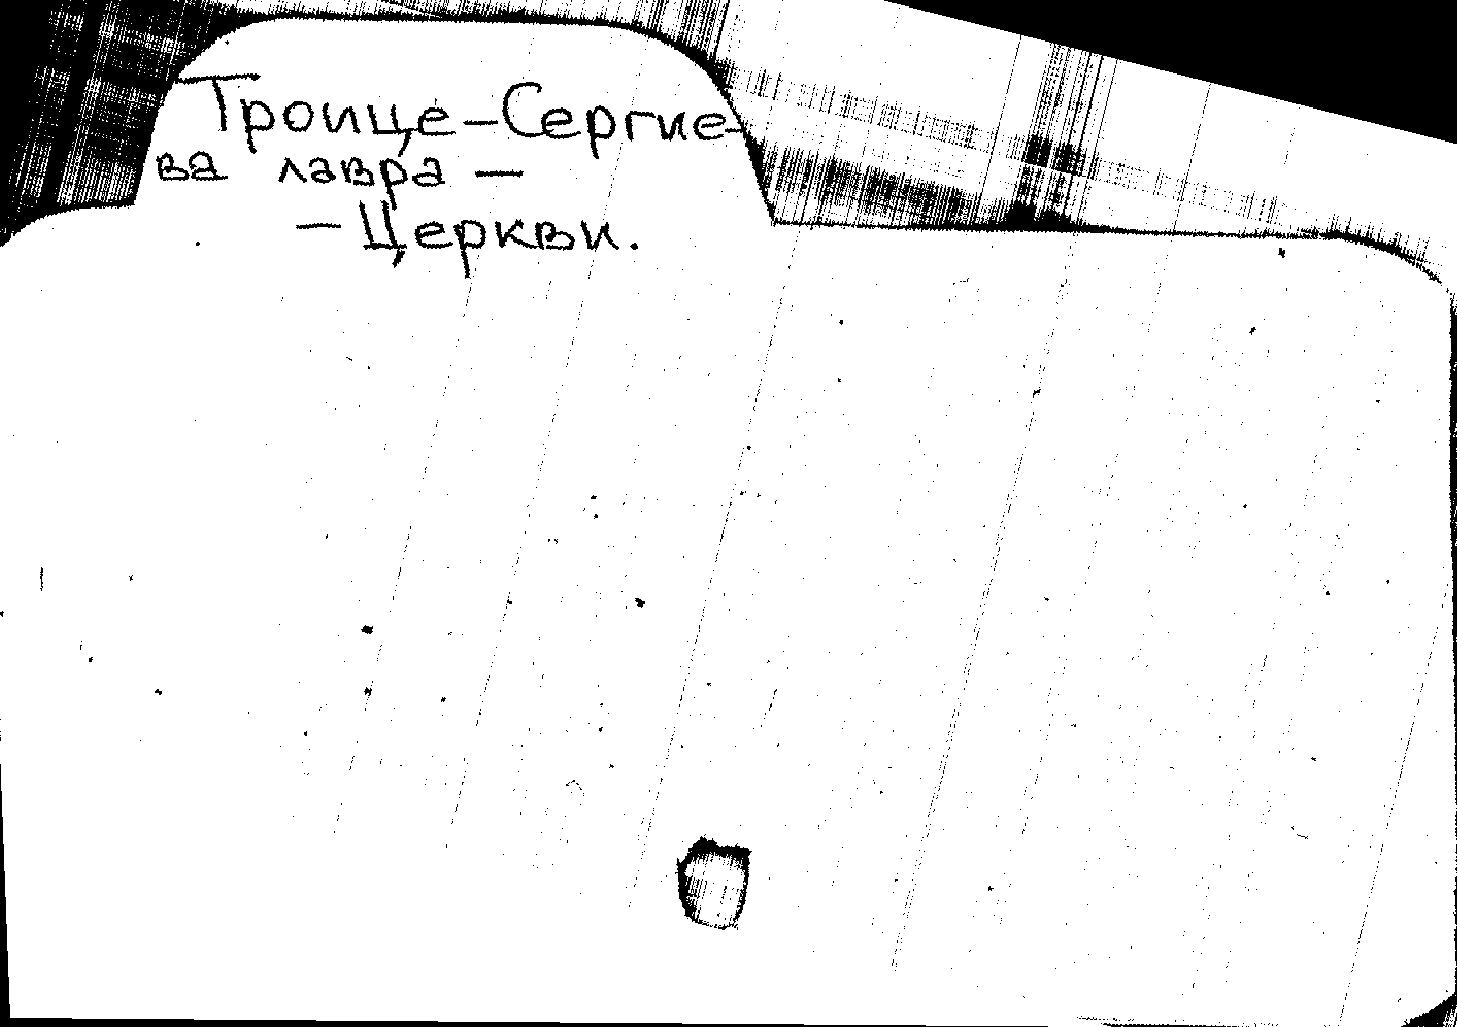 Троице-Сергие-
ва лавра —
— Церкви.